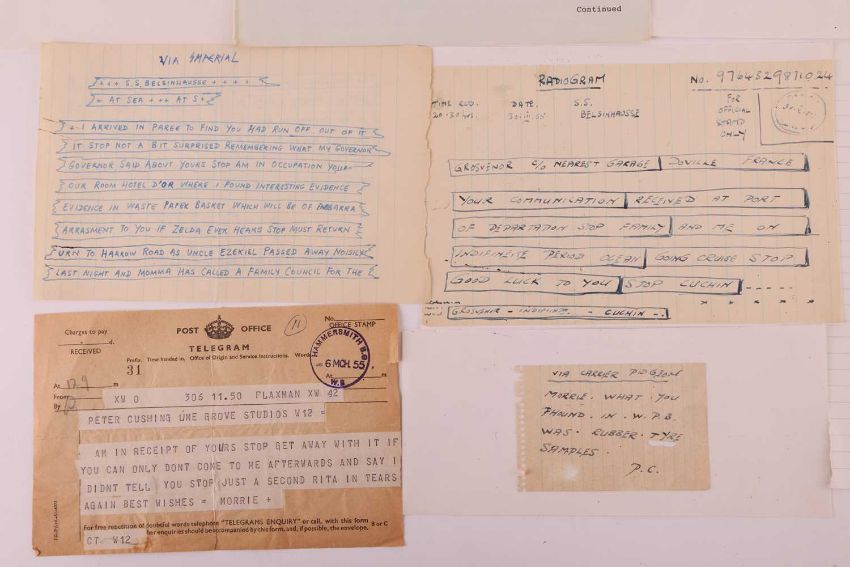 Continued
VIA IMPERIAL
+++ S.S. BELSINHAUSSE + + + + +
+ AT SEA +++ AT S+
+ - I ARRIVED IN PAREE TO FIND YOU HAD RUN OFF. OUT OF IT
IT STOP NOT A BIT SURPRISED REMEMBERING WHAT MY GOVERNOR
GOVERNOR SAID ABOUT YOURS STOP AM IN OCCUPATION YOUR
OUR ROOM HOTEL D'OR WHERE I FOUND INTERESTING EVIDENCE
EVIDENCE IN WASTE PAPER BASKET WHICH WILL BE OF
ARRASMENT TO YOU IF ZELDA EVER HEARS STOP MUST RETURN
URN TO HARROW ROAD AS UNCLE EZEKIEL PASSED AWAY NOISILY
LAST NIGHT AND MOMMA HAS CALLED A FAMILY COUNCIL FOR THE
RADIOGRAM No. 9764529871024
TIME RCD. DATE. S.S.
20.30 HRS. 30.III.55 BELSINHAUSSE
FOR
OFFICIAL
STAMP
ONLY
GROSVENOR C/O NEAREST GARAGE DOVILLE FRANCE
YOUR COMMUNICATION RECEIVED AT PORT
OF DEPARTATION STOP FAMILY AND ME ON
INDIFINITE PERIOD OCEAN GOING CRUISE STOP
GOOD LUCK TO YOU STOP CUCHIN
GROSVNIR - INDIFINITE - CUCHIN
Charges to pay
RECEIVED
POST OFFICE
TELEGRAM
No.
OFFICE STAMP
11
HAMMERSMITH B.O.
6 MCH 55
W.6
Prefix. Time handed in. Office of Origin and Service Instructions. Words.
31
At m
From
By
XW 0 306 11.50 FLAXMAN XW 42
PETER CUSHING LIME GROVE STUDIOS W12 =
AM IN RECEIPT OF YOURS STOP GET AWAY WITH IT IF
YOU CAN ONLY DONT COME TO ME AFTERWARDS AND SAY I
DIDNT TELL YOU STOP JUST A SECOND RITA IN TEARS
AGAIN BEST WISHES = MORRIE +
For free repetition of doubtful words telephone "TELEGRAMS ENQUIRY" or call, with this form
her enquiries should be accompanied by this form, and, if possible, the envelope. B or C
CT W12
VIA CARRIER PIDGEON
MORRIE. WHAT YOU
FHOUND. IN. W.P.B.
WAS. RUBBER. TYRE
SAMPLES.
P.C.